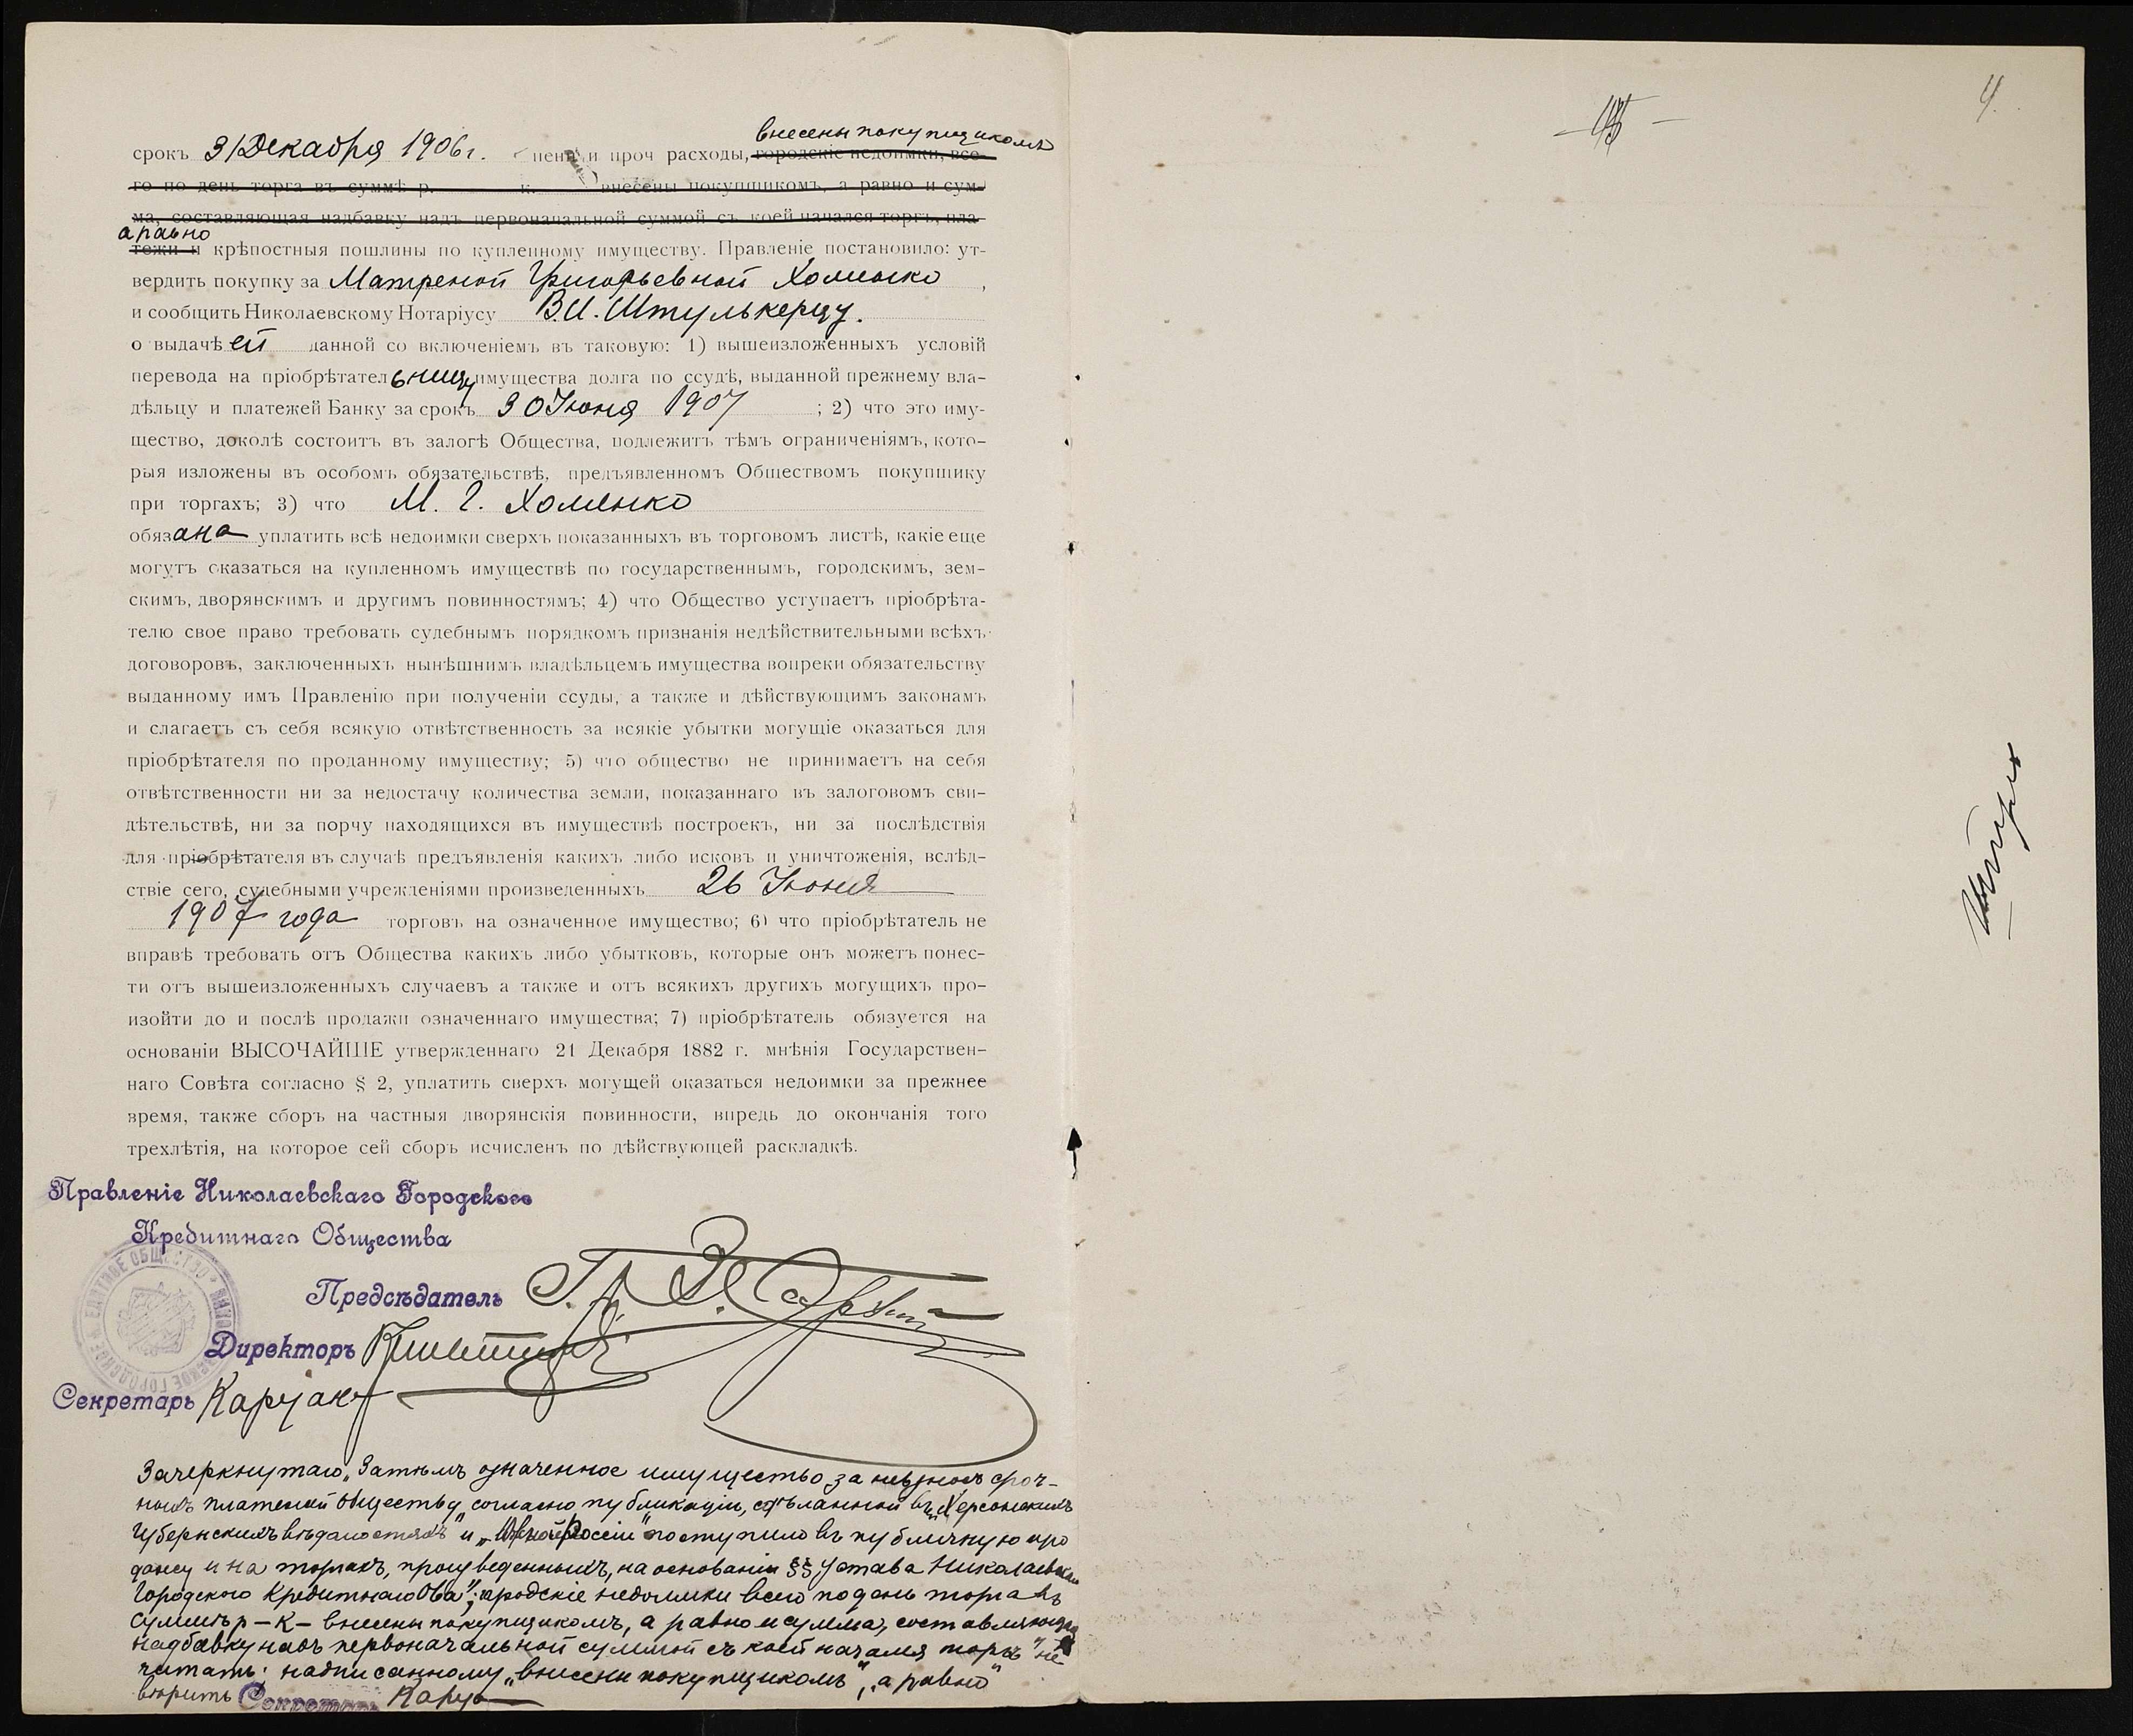 внесены покупщикомъ
срокъ 31 Декабря 1906 г. пени и проч расходы, городскіе недоимки, все-
го по день торга въ суммѣ р. к. внесены покупщикомъ, а равно и сум-
ма, составляющая надбавку надъ первоначальной суммой съ коей начался торгъ, пла-
а равно
тежи и крѣпостныя пошлины по купленному имуществу. Правленіе постановило: ут-
вердить покупку за Матреной Григорьевной Хоменко,
и сообщить Николаевскому Нотаріусу В.И. Штулькерцу.
о выдачѣ ей данной со включеніемъ въ таковую: 1) вышеизложенныхъ условій
перевода на пріобрѣтательницу имущества долга по ссудѣ, выданной прежнему вла-
дѣльцу и платежей Банку за срокъ 30 Іюня 1907 ; 2) что это иму-
щество, доколѣ состоитъ въ залогѣ Общества, подлежитъ тѣмъ ограниченіямъ, кото-
рыя изложены въ особомъ обязательствѣ, предъявленномъ Обществомъ покупщику
при торгахъ; 3) что М. Г. Хоменко
обязана уплатить всѣ недоимки сверхъ показанныхъ въ торговомъ листѣ, какіе еще
могутъ оказаться на купленномъ имуществѣ по государственнымъ, городскимъ, зем-
скимъ, дворянскимъ и другимъ повинностямъ; 4) что Общество уступаетъ пріобрѣта-
телю свое право требовать судебнымъ порядкомъ признанія недѣйствительными всѣхъ
договоровъ, заключенныхъ нынѣшнимъ владѣльцемъ имущества вопреки обязательству
выданному имъ Правленію при полученіи ссуды, а также и дѣйствующимъ законамъ
и слагаетъ съ себя всякую отвѣтственность за всякіе убытки могущіе оказаться для
пріобрѣтателя по проданному имуществу; 5) что общество не принимаетъ на себя
отвѣтственности ни за недостачу количества земли, показаннаго въ залоговомъ сви-
дѣтельствѣ, ни за порчу находящихся въ имуществѣ построекъ, ни за послѣдствія
для пріобрѣтателя въ случаѣ предъявленія какихъ либо исковъ и уничтоженія, вслѣд-
ствіе сего, судебными учрежденіями произведенныхъ 26 Іюня
1907 года торговъ на означенное имущество; 6) что пріобрѣтатель не
вправѣ требовать отъ Общества какихъ либо убытковъ, которые онъ можетъ понес-
ти отъ вышеизложенныхъ случаевъ а также и отъ всякихъ другихъ могущихъ про-
изойти до и послѣ продажи означеннаго имущества; 7) пріобрѣтатель обязуется на
основаніи ВЫСОЧАЙШЕ утвержденнаго 21 Декабря 1882 г. мнѣнія Государствен-
наго Совѣта согласно § 2, уплатить сверхъ могущей оказаться недоимки за прежнее
время, также сборъ на частныя дворянскія повинности, впредь до окончанія того
трехлѣтія, на которое сей сборъ исчисленъ по дѣйствующей раскладкѣ.
Правленіе Николаевскаго Городского
Кредитнаго Общества
Предсѣдатель
Директоръ
Секретарь
Зачеркнутаго „Затѣмъ означенное имущество за невзносъ сроч-
ныхъ платежей Обществу, согласно публикаціи, сдѣланной въ „Херсонскихъ
Губернскихъ вѣдомостяхъ" и „Южной Россіи" поступило въ публичную про
дажу и на торгахъ, произведенныхъ, на основаніи §§ Устава Николаевскаго
Городского Кредитнаго О-ва"; „городскіе недоимки всего по день торга въ
суммѣ р – к – внесены покупщикомъ, а равно и сумма, составляющая
надбавку надъ первоначальной суммой съ коей начался торгъ" не
читать: надписанному „внесены покупщикомъ", „а равно"
вѣрить Секретарь
4.